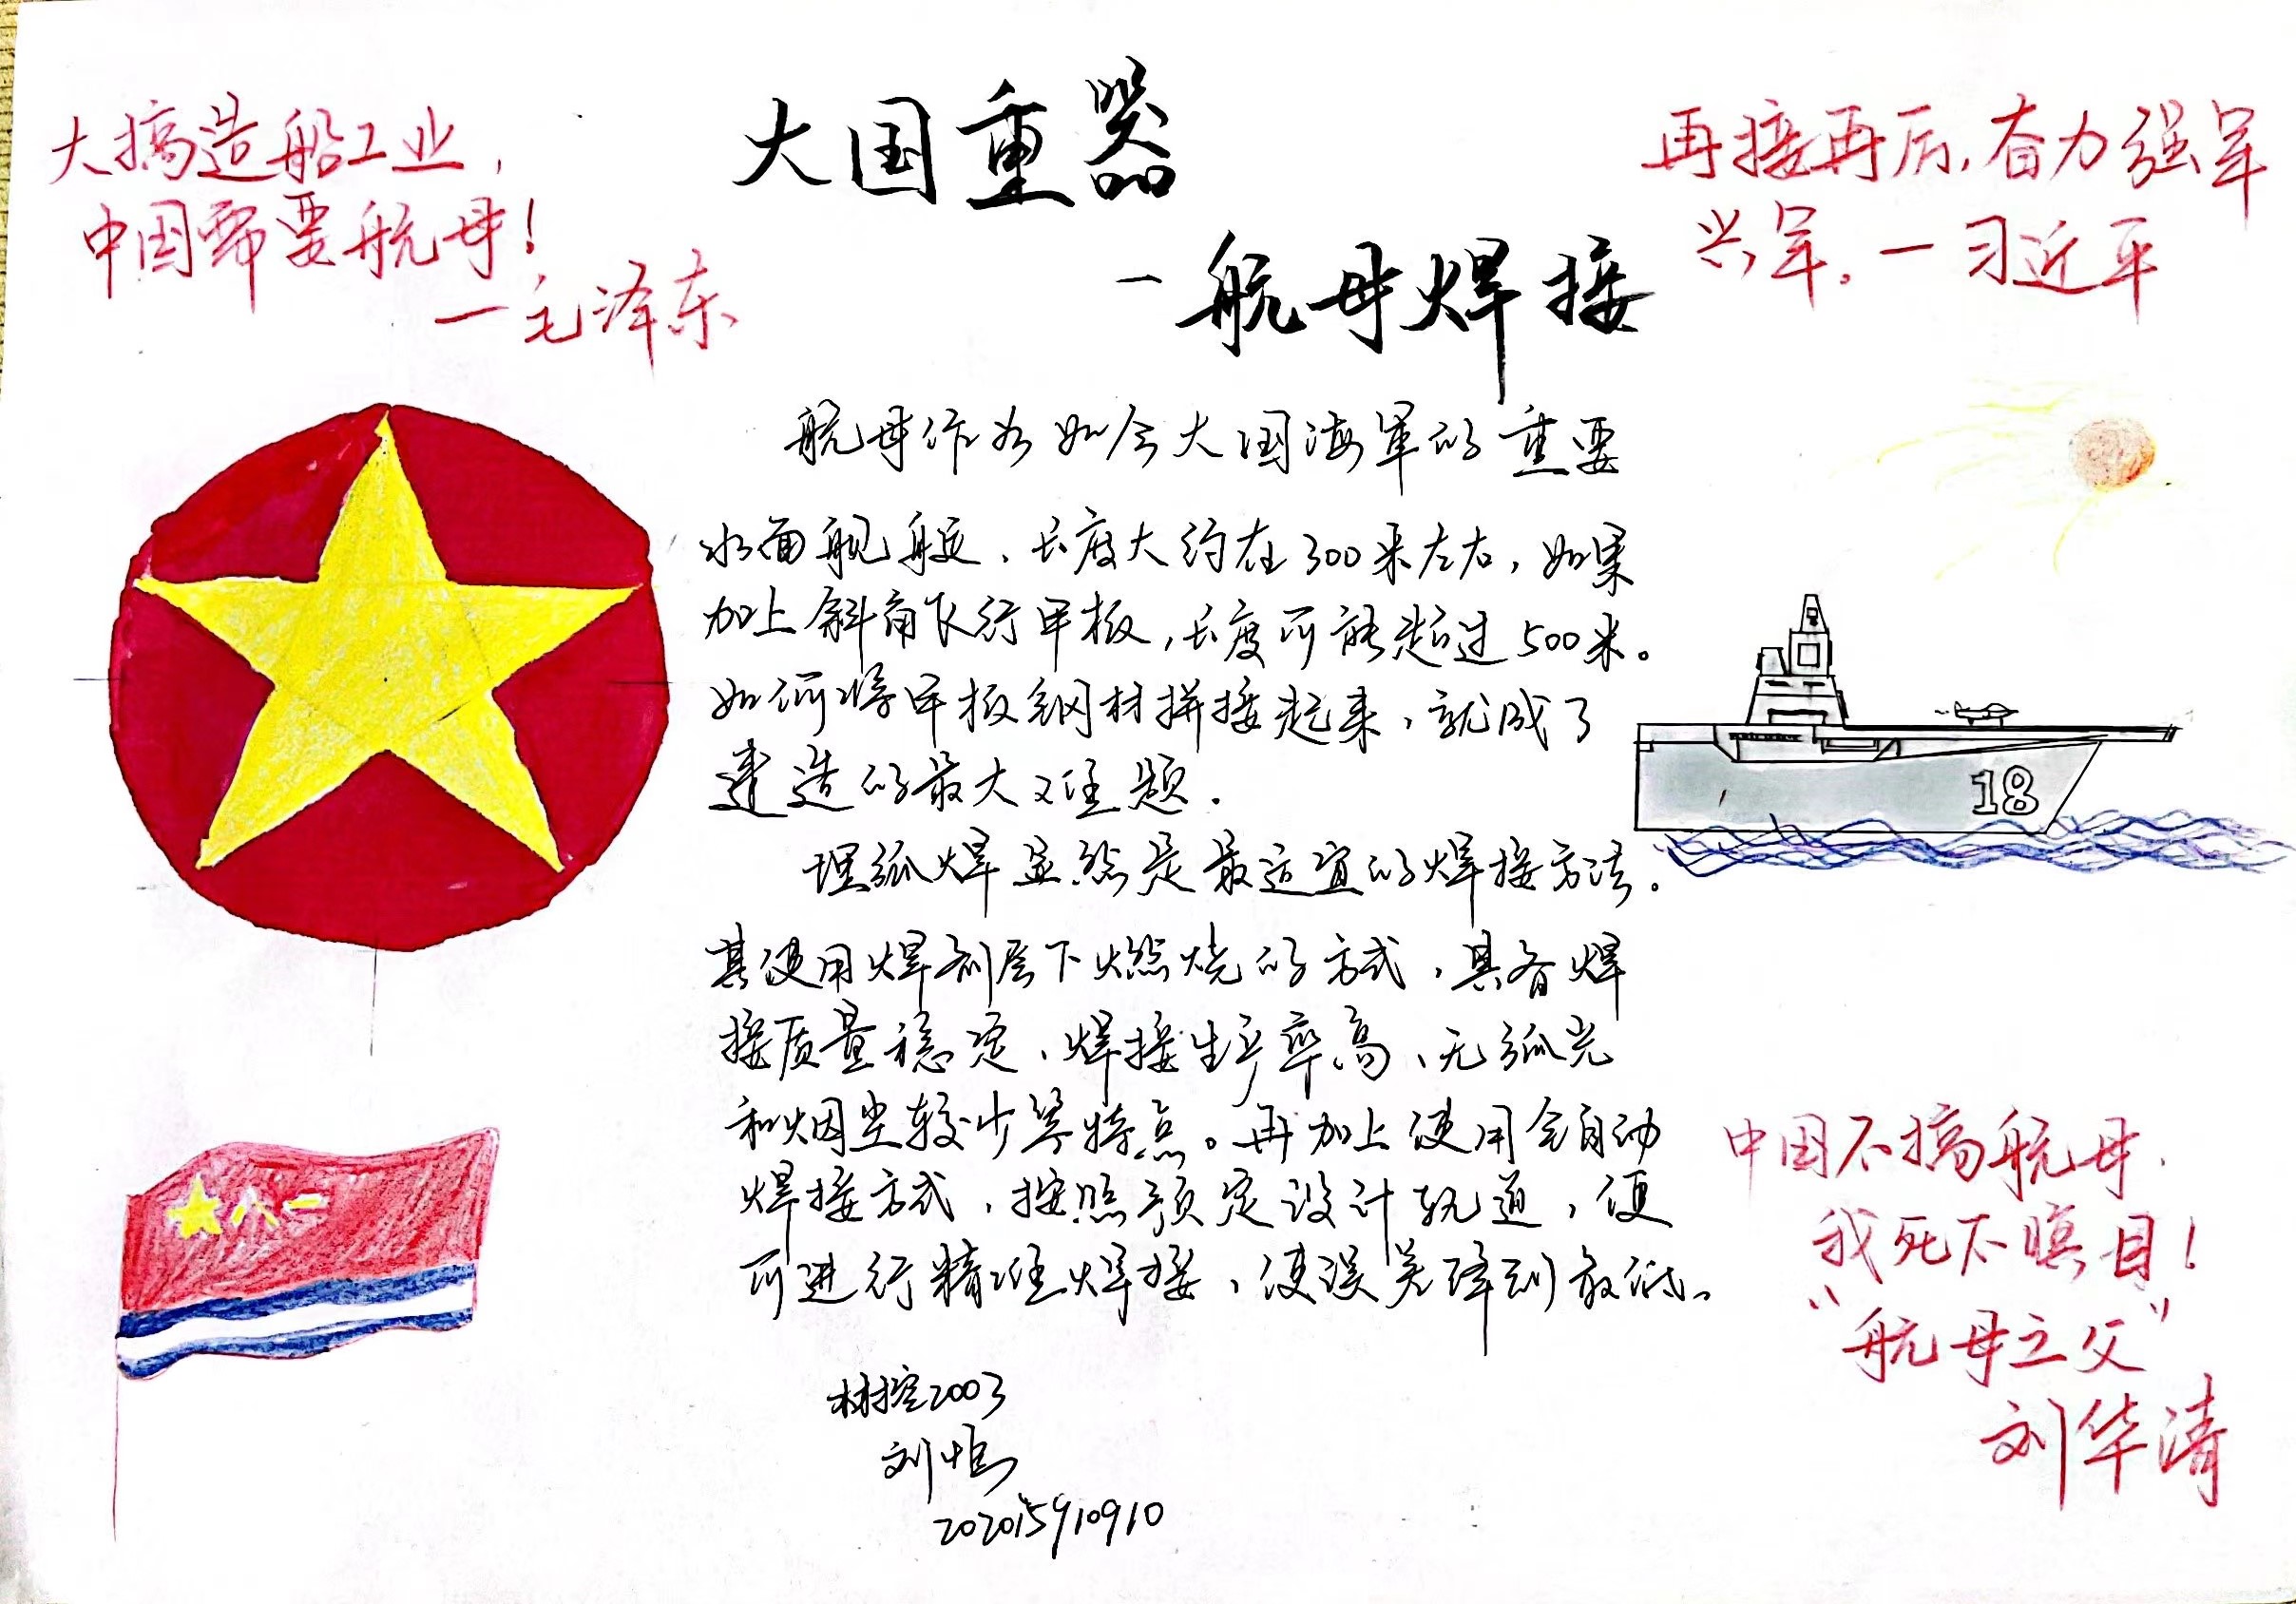 大搞造船工业,
中国需要航母!
—毛泽东
大国重器
—航母焊接
再接再厉,奋力强军
兴军。—习近平
航母作为如今大国海军的重要
水面舰艇、长度大约在300米左右,如果
加上斜角飞行甲板,长度可能超过500米。
如何将甲板钢材拼接起来,就成了
建造的最大难题.
埋弧焊显然是最适宜的焊接方法。
其使用焊剂层下燃烧的方式,具备焊
接质量稳定、焊接生产率高、无弧光
和烟尘较少等特点。再加上使用全自动
焊接方式,按照预定设计轨道,便
可进行精准焊接,使误差降到最低。
18
八一
中国不搞航母.
我死不瞑目!
"航母之父"
刘华清
材控2003
刘恒
202015910910